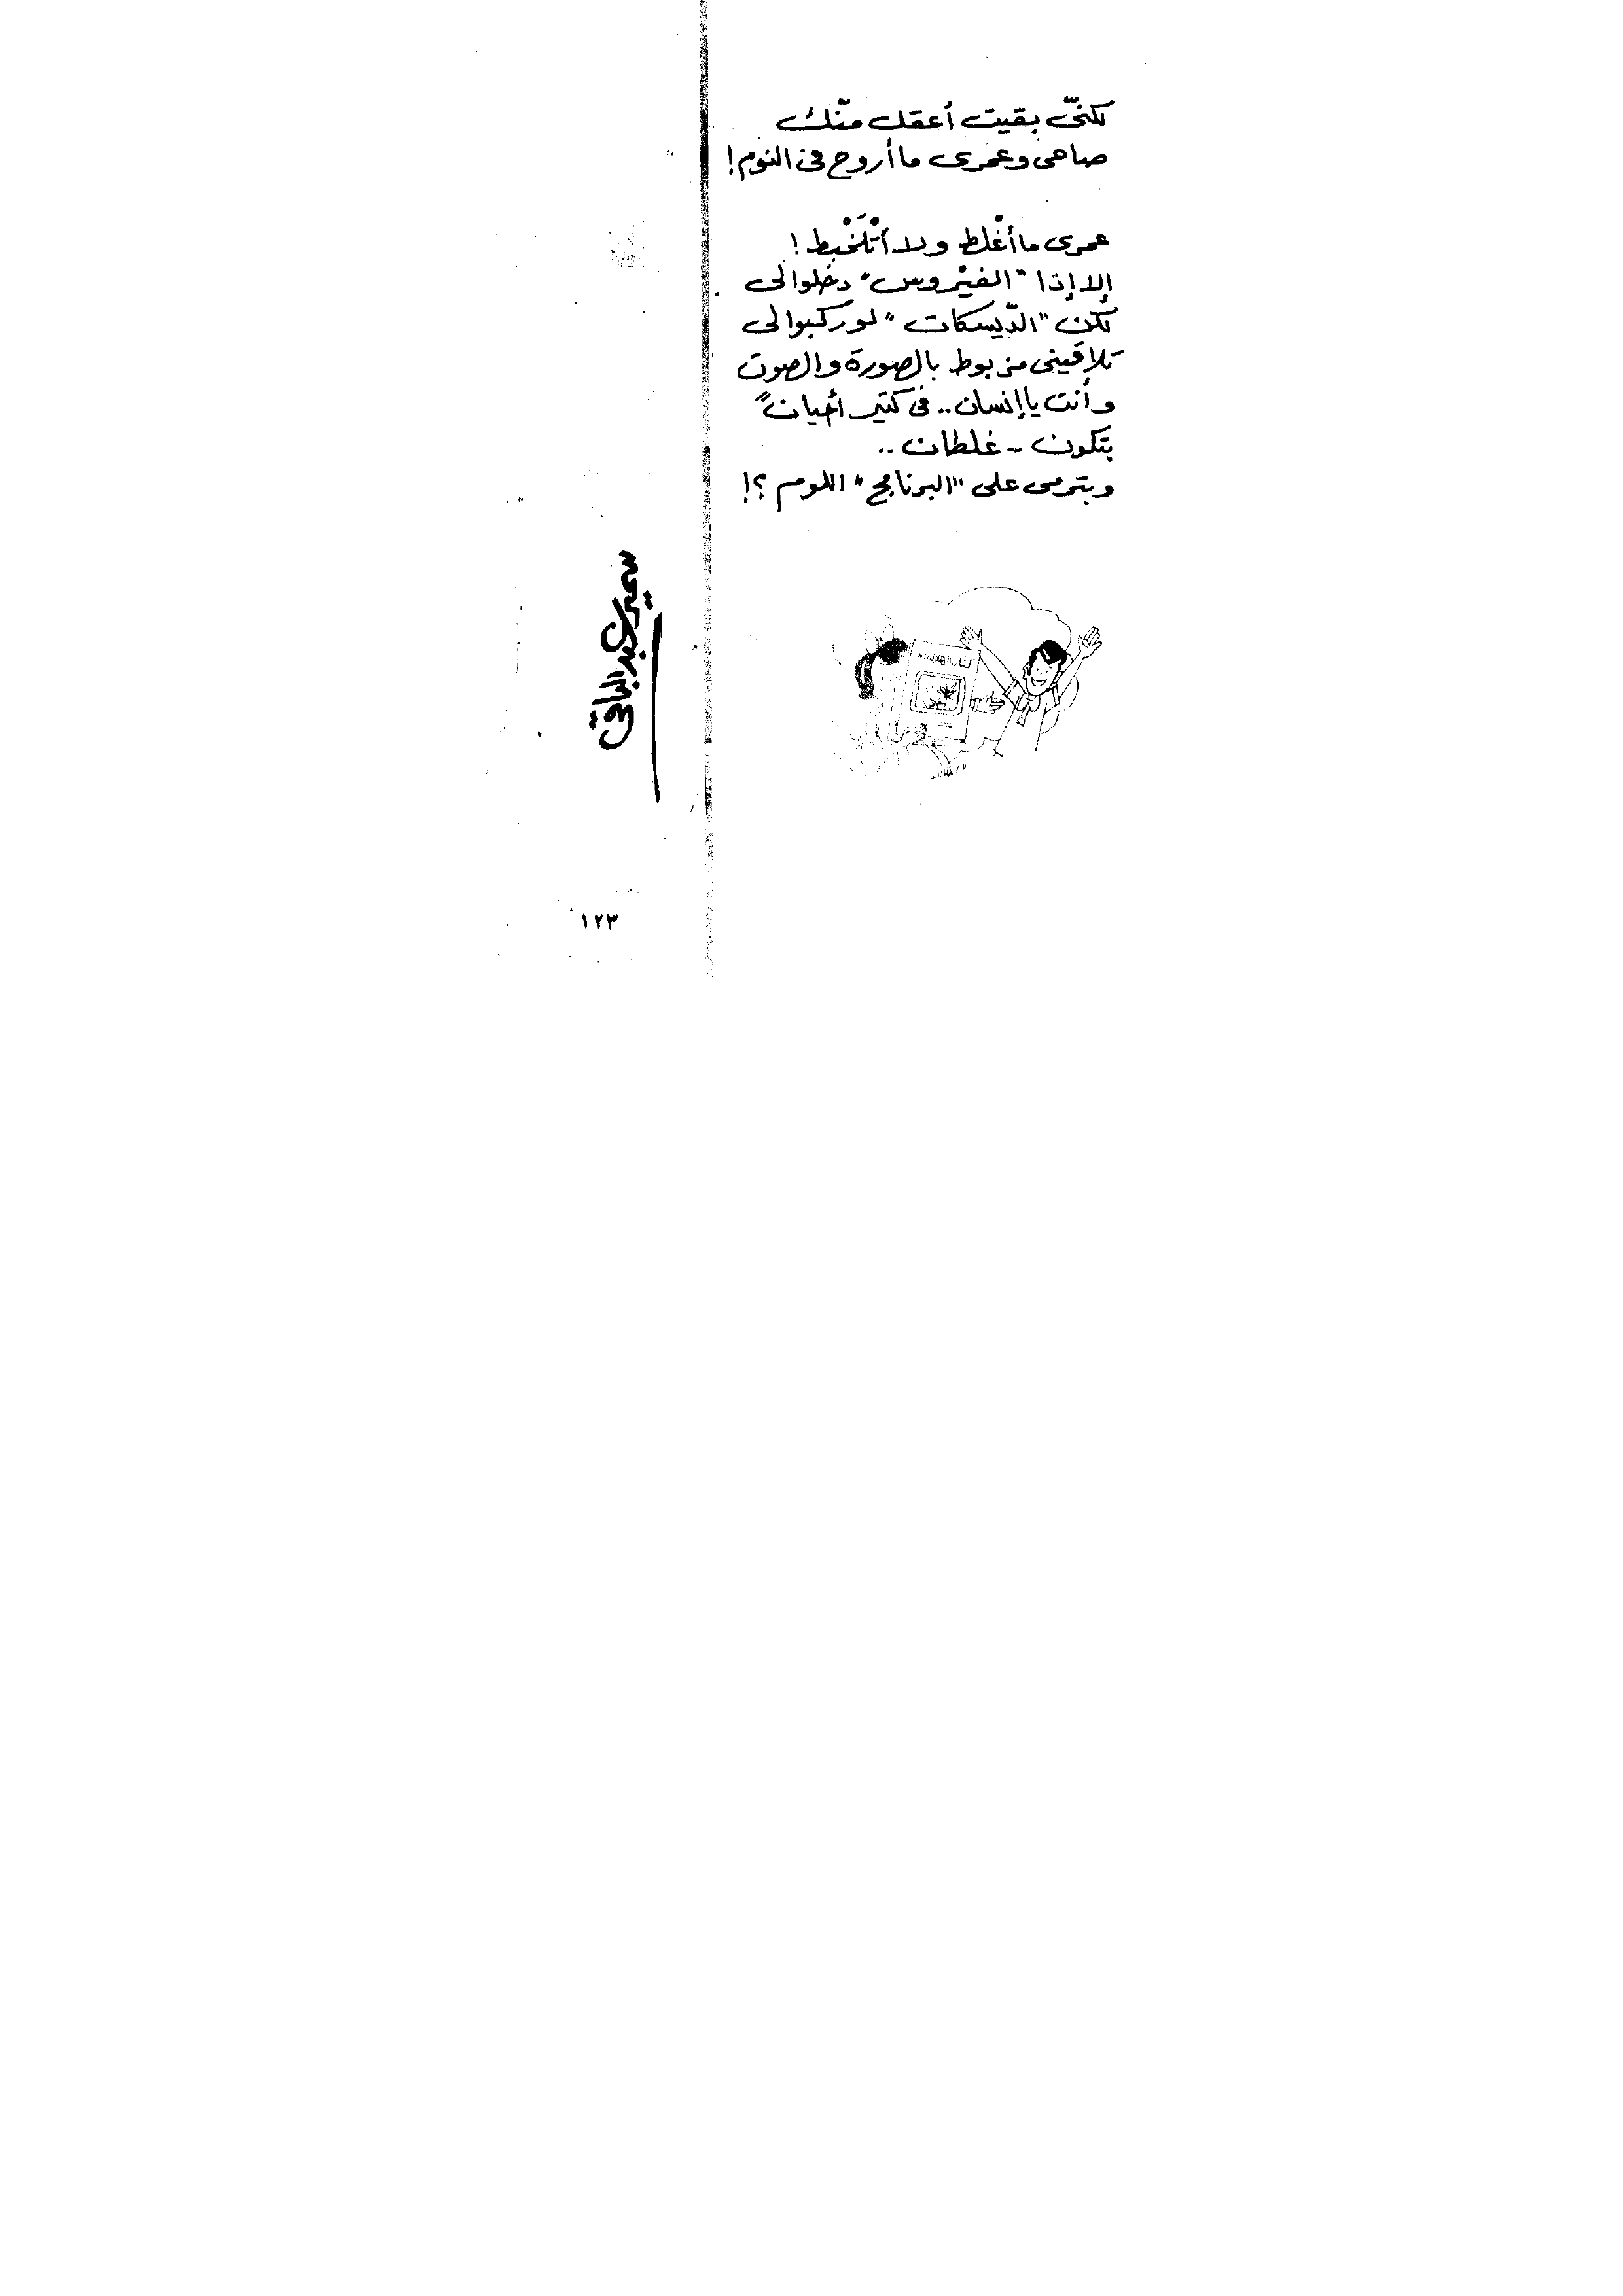 لكنّى بقيت أعقل منّك
صاحى وعمرى ما أروح فى النوم!
عمرى ما أغْلط ولا أتْلَخْبط!
إلا إذا "الفيْروس" دخلوا لى
لكن "الدّيسكات" لو ركبوا لى
تلاقينى مزبوط بالصورة والصوت
وأنت يا إنسان.. فى كتير أحيانًا
بتكون - غلطان..
وبترمى على "البرنامج" اللوم؟!
سمير عبد الباقى
١٢٣